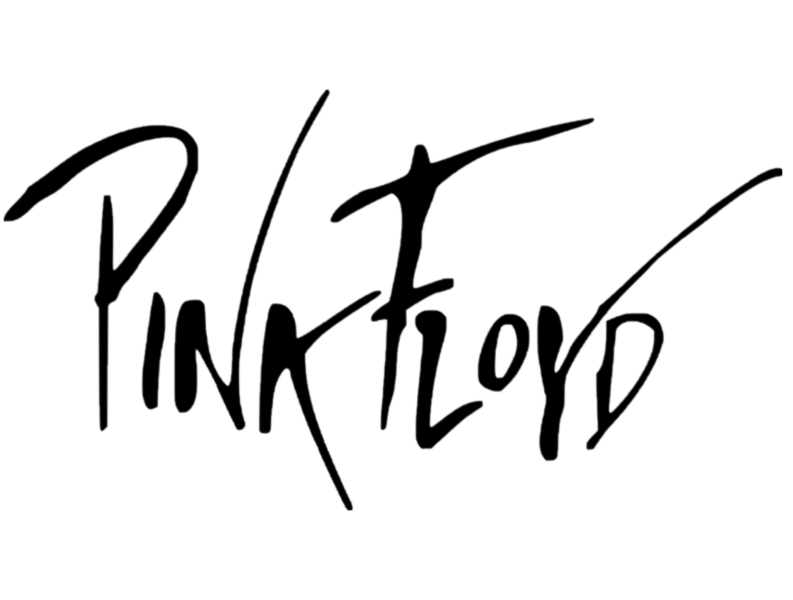 PINK FLOYD